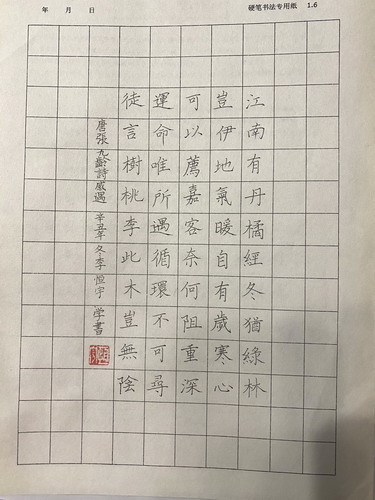 年 月 日 硬笔书法专用纸 1.6
江南有丹橘經冬猶綠林
豈伊地氣暖自有歲寒心
可以薦嘉客奈何阻重深
運命唯所遇循環不可尋
徒言樹桃李此木豈無陰
唐張九齡詩感遇 辛丑年冬季 恒宇 学書